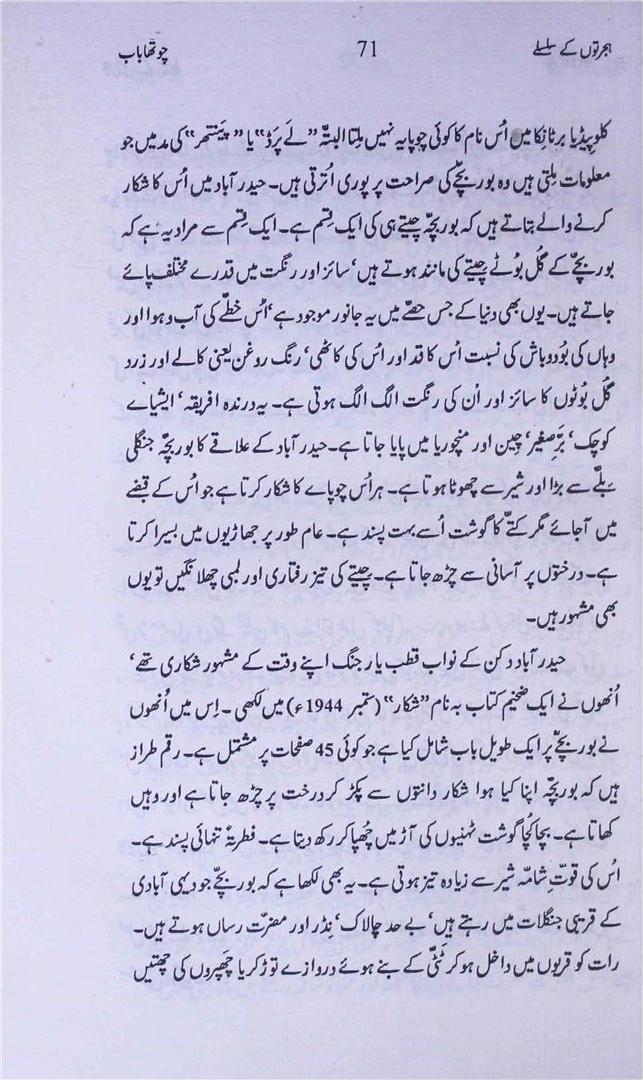 ہجرتوں کے سلسلے 71 چوتھا باب
کلوپیڈیا برٹانِکا میں اُس نام کا کوئی چوپایہ نہیں مِلتا البتّہ ”لے پَرڈ“ یا ”پینتھر“ کی مد میں جو
معلومات مِلتی ہیں وہ بوربچّے کی صراحت پر پوری اُترتی ہیں۔ حیدر آباد میں اُس کا شکار
کرنے والے بتاتے ہیں کہ بوربچّہ چیتے ہی کی ایک قِسم ہے۔ ایک قِسم سے مراد یہ ہے کہ
بوربچّے کے گُل بُوٹے چیتے کی مانند ہوتے ہیں‘ سائز اور رنگت میں قدرے مختلف پائے
جاتے ہیں۔ یوں بھی دنیا کے جس حصّے میں یہ جانور موجود ہے‘ اُس خطّے کی آب و ہوا اور
وہاں کی بُود و باش کی نسبت اُس کا قد اور اُس کی کاٹھی‘ رنگ روغن یعنی کالے اور زرد
گُل بُوٹوں کا سائز اور اُن کی رنگت الگ الگ ہوتی ہے۔ یہ درندہ افریقہ‘ ایشیاے
کوچک‘ برِّصغیر‘ چین اور منچوریا میں پایا جاتا ہے۔ حیدر آباد کے علاقے کا بوربچّہ جنگلی
بِلّے سے بڑا اور شیر سے چھوٹا ہوتا ہے۔ ہر اُس چوپاے کا شکار کرتا ہے جو اُس کے قبضے
میں آجائے مگر کتّے کا گوشت اُسے بہت پسند ہے۔ عام طور پر جھاڑیوں میں بسیرا کرتا
ہے۔ درختوں پر آسانی سے چڑھ جاتا ہے۔ چیتے کی تیز رفتاری اور لمبی چھلانگیں تو یوں
بھی مشہور ہیں۔
حیدر آباد دکن کے نواب قطب یار جنگ اپنے وقت کے مشہور شکاری تھے‘
اُنھوں نے ایک ضخیم کتاب بہ نام ”شکار“ (ستمبر 1944ء) میں لکھی۔ اِس میں اُنھوں
نے بوربچّے پر ایک طویل باب شامل کیا ہے جو کوئی 45 صفحات پر مشتمل ہے۔ رقم طراز
ہیں کہ بوربچّہ اپنا کیا ہوا شکار دانتوں سے پکڑ کر درخت پر چڑھ جاتا ہے اور وہیں
کھاتا ہے۔ بچا کُچا گوشت ٹہنیوں کی آڑ میں چُھپا کر رکھ دیتا ہے۔ فطرتاً تنہائی پسند ہے۔
اُس کی قوّتِ شامّہ شیر سے زیادہ تیز ہوتی ہے۔ یہ بھی لکھا ہے کہ بوربچّے جو دیہی آبادی
کے قریبی جنگلات میں رہتے ہیں‘ بے حد چالاک‘ نِڈر اور مضرّت رساں ہوتے ہیں۔
رات کو قریوں میں داخل ہو کر ٹٹّی کے بنے ہوئے دروازے توڑ کر یا چھپروں کی چھتیں